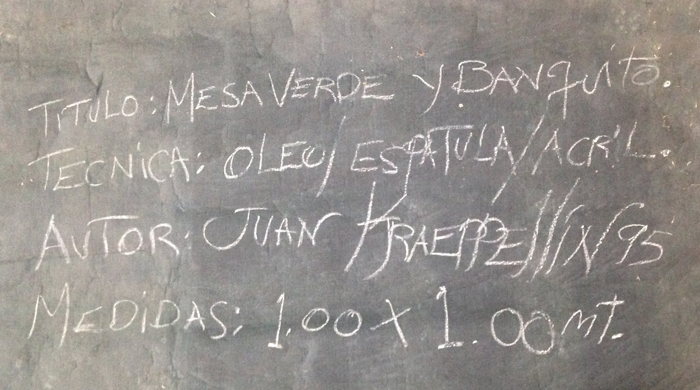 TITULO: MESA VERDE Y BANQUITO.
TECNICA: OLEO/ESPATULA/ACRIL.
AUTOR: JUAN KRAEPPELLIN/95
MEDIDAS: 1.00 X 1.00 MT.